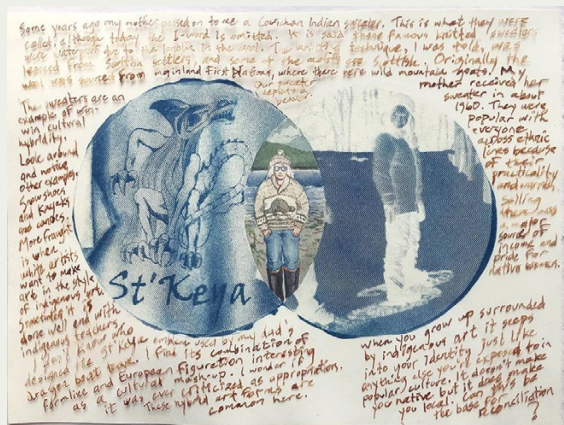 Some years ago my mother passed on to me a Cowichan Indian sweater. This is what they were
called, although today the I-word is omitted. It is said these famous knitted sweaters
were waterproof due to the lanolin in the wool. The knitting technique, I was told, was
learned from Scottish settlers, and some of the motifs are Scottish. Originally the
wool was sourced from inland First Nations, where there were wild mountain goats. My
mother received her
sweater in about
1960. They were
popular with
everyone
across ethnic
lines because
of their
practicality
and warmth.
Selling
them was
a major
source of
income and
pride for
native women.
The sweaters are an
example of win-
win cultural
hybridity.
Look around
and notice
other examples.
Snowshoes
and kayaks
and canoes.
More fraught
is when
white artists
want to make
art in the style
of indigenous
Sometimes it
done well and with
indigenous teachers.
I don't know who
designed the St'Keya emblem used by my dad's
dragon boat team. I find its combination of
formline and European figuration interesting
as a cultural mashup. I wonder if
it was ever criticized as appropriation.
These hybrid art forms are
common here.
St'Keya
When you grow up surrounded
by indigenous art it seeps
into your identity just like
anything else you're exposed to in
popular culture. It doesn't make
you native but it does make
you local. Can this be
the basis for
reconciliation
?